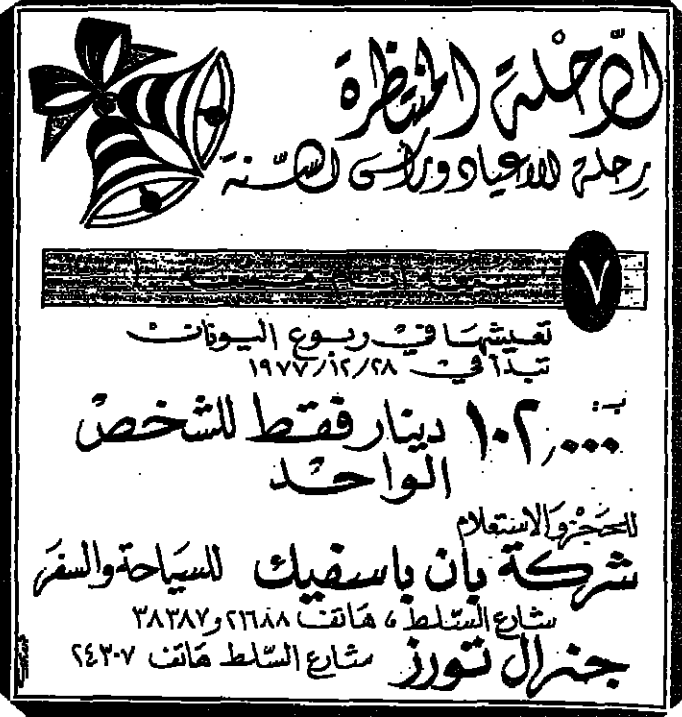 الرحلة المنتظرة
رحلة الاعياد ورأس السنة
٧
تعيشها في ربوع اليونان
تبدأ في ٢٨/١٢/١٩٧٧
بـ: ١٠٢,٠٠٠ دينار فقط للشخص
الواحد
للحجز والاستعلام
شركة بان باسفيك للسياحة والسفر
شارع السلط، هاتف ٢١٦٨٨ و٣٨٣٨٧
جنرال تورز شارع السلط هاتف ٢٤٣٠٧